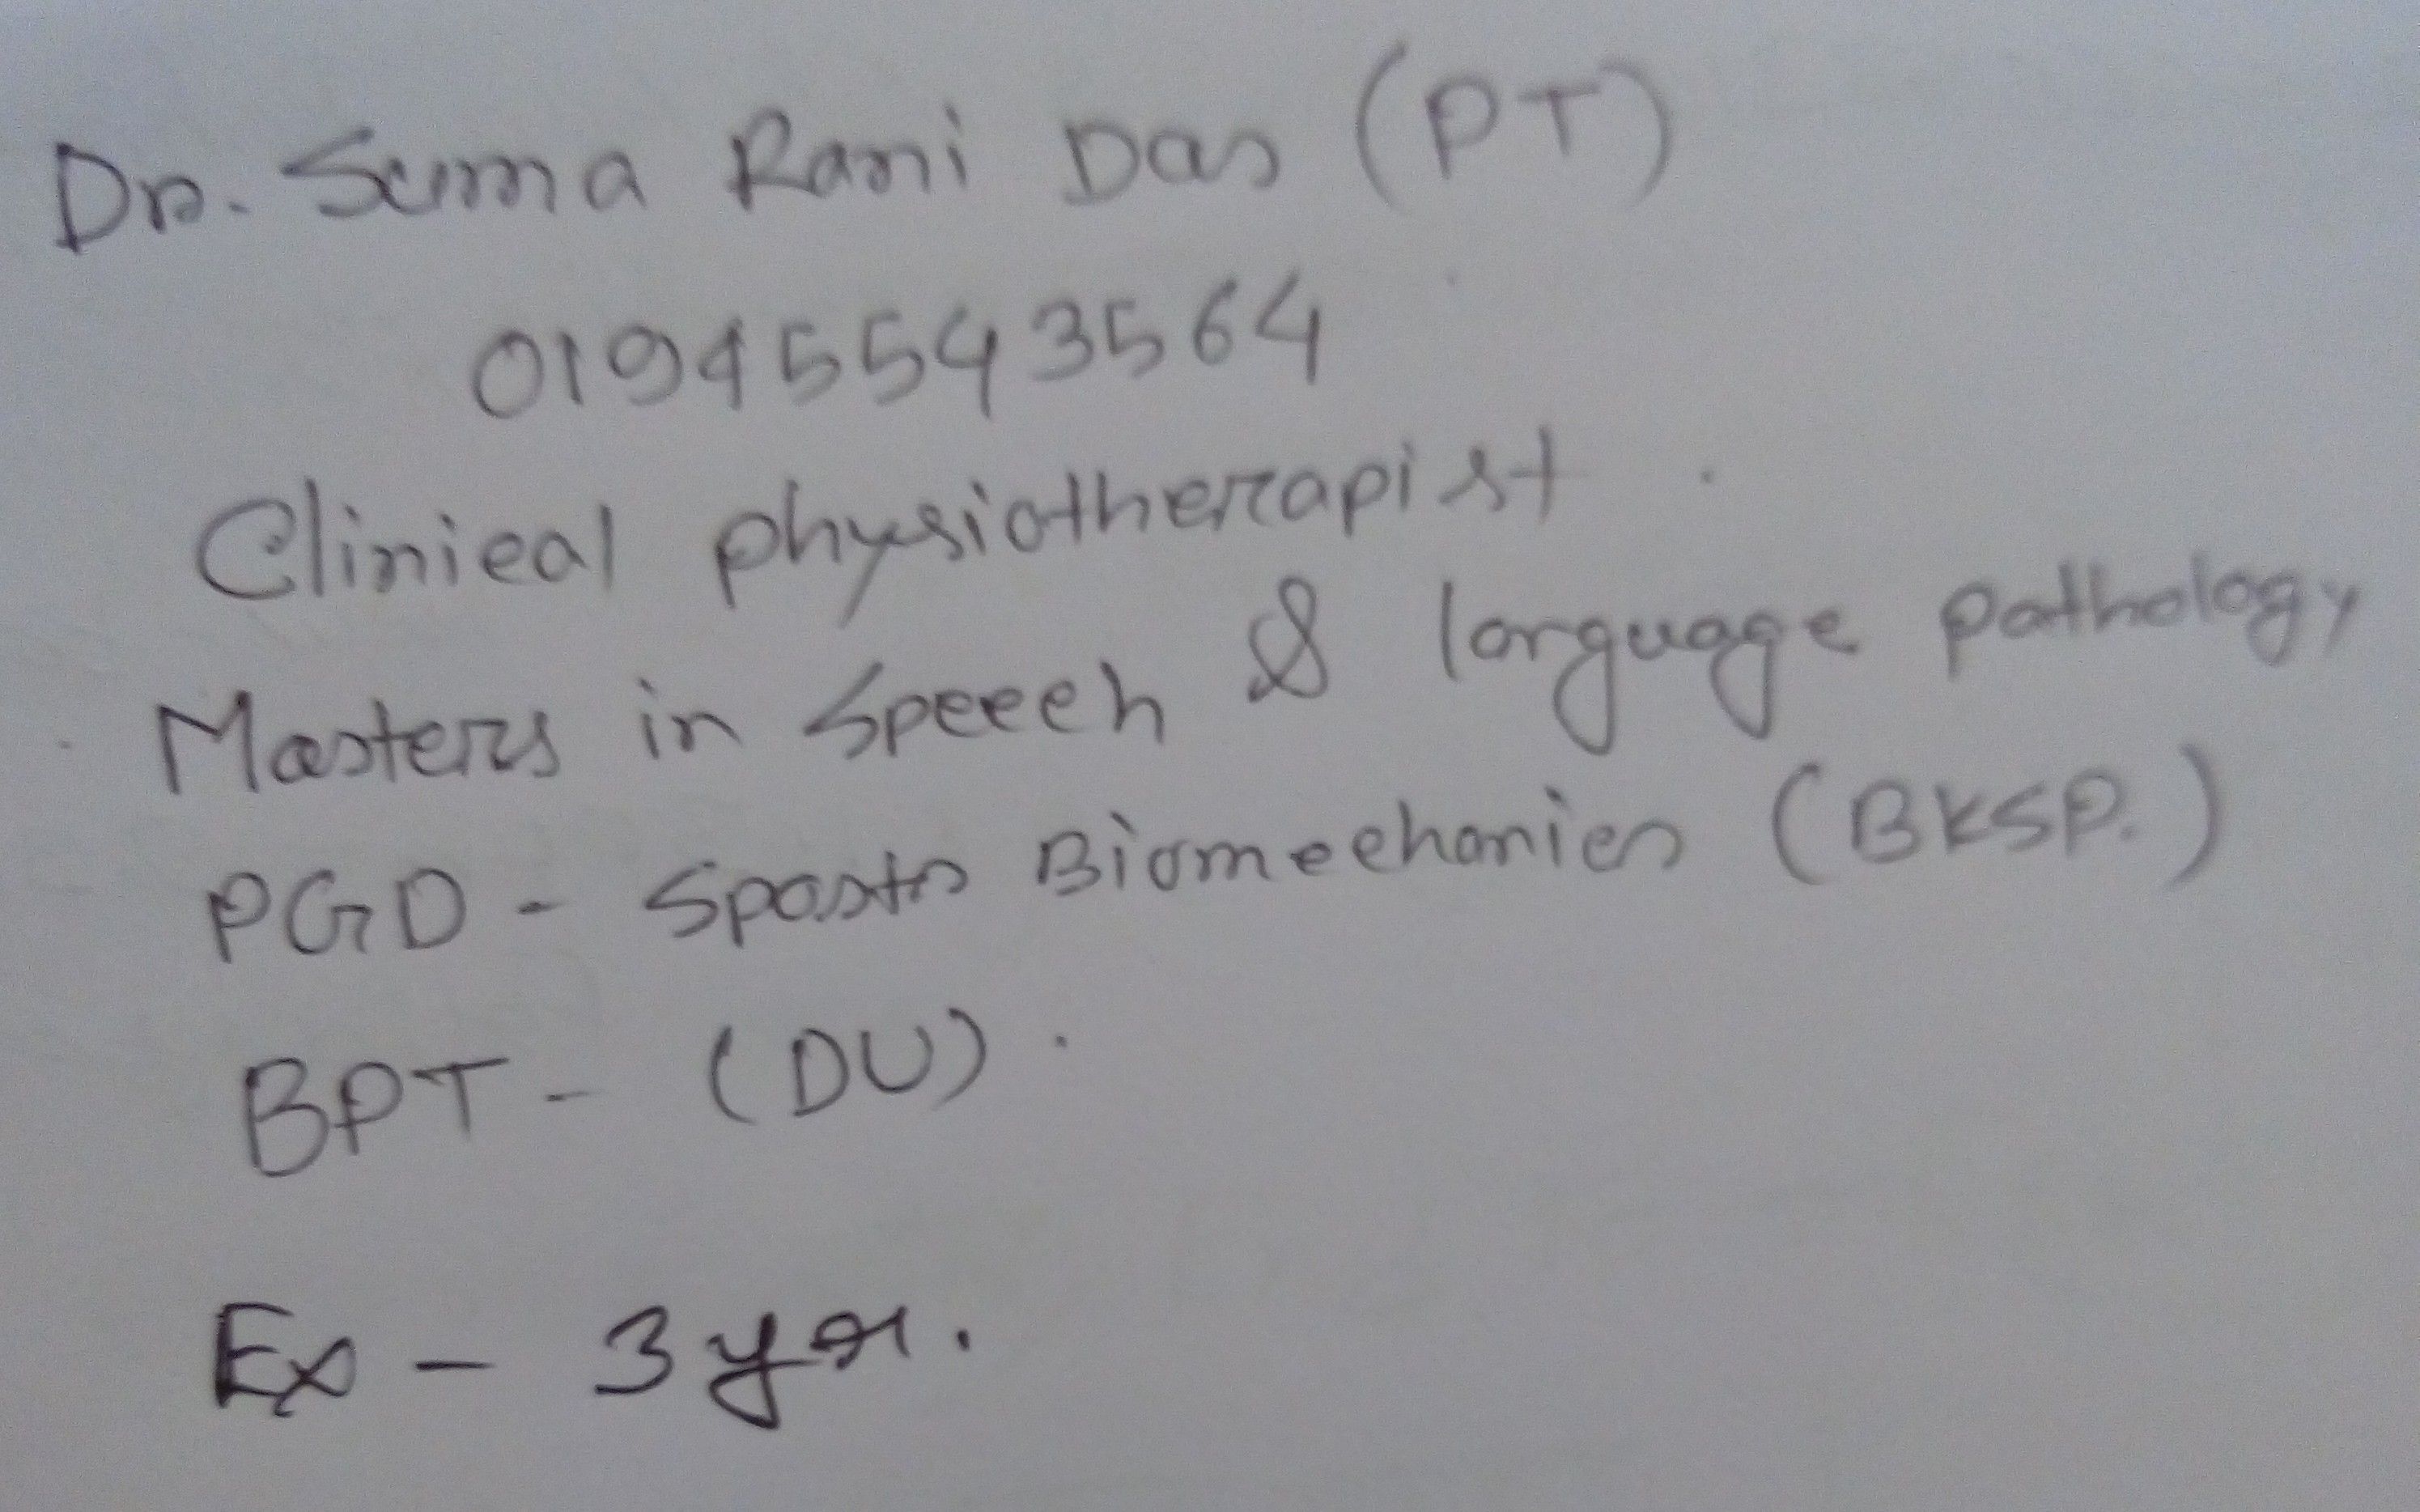 Dr. Suma Rani Das (PT)
01945543564
Clinical physiotherapist
Masters in Speech & language pathology
PGD - Sports Biomechanics (BKSP.)
BPT - (DU).
Ex - 3 yr.